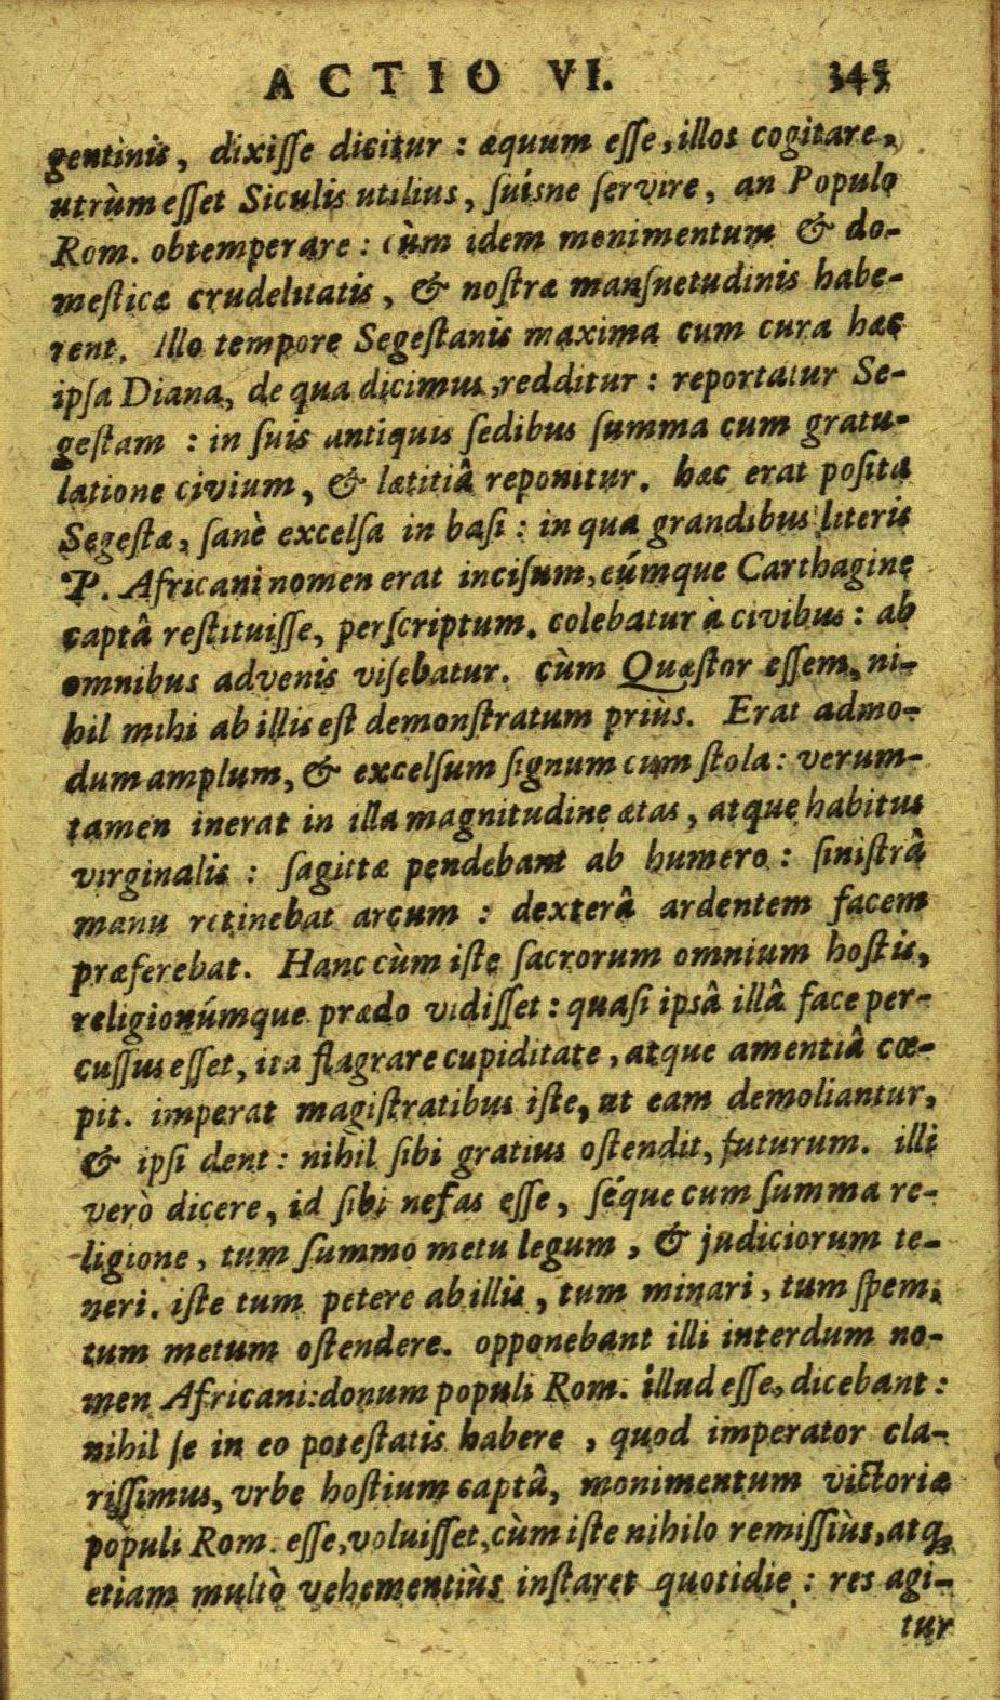 ACTIO VI. 345
gentinis, dixiſſe dicitur : æquum eſſe, illos cogitare,
utrùm eſſet Siculis utilius, ſuisne ſervire, an Populo
Rom. obtemperare : cùm idem monimentum & do-
meſticæ crudelitatis, & noſtræ manſuetudinis habe-
rent. Illo tempore Segeſtanis maxima cum cura hæc
ipſa Diana, de qua dicimus, redditur : reportatur Se-
geſtam : in ſuis antiquis ſedibus ſumma cum gratu-
latione civium, & lætitiâ reponitur. hæc erat poſita
Segeſtæ, ſanè excelſa in baſi : in qua grandibus literis
P. Africani nomen erat inciſum, eúmque Carthagine
captâ reſtituiſſe, perſcriptum. colebatur à civibus : ab
omnibus advenis viſebatur. cùm Quæſtor eſſem, ni-
hil mihi ab illis eſt demonſtratum priùs. Erat admo-
dum amplum, & excelſum ſignum cum ſtola : verum-
tamen inerat in illa magnitudine ætas, atque habitus
virginalis : ſagittæ pendebant ab humero : ſiniſtrâ
manu retinebat arcum : dexterâ ardentem facem
præferebat. Hanc cùm iſte ſacrorum omnium hoſtis,
religionúmque prædo vidiſſet : quaſi ipsâ illâ face per-
cuſſus eſſet, ita flagrare cupiditate, atque amentiâ cœ-
pit. imperat magiſtratibus iſte, ut eam demoliantur,
& ipſi dent : nihil ſibi gratius oſtendit, futurum. illi
verò dicere, id ſibi nefas eſſe, ſéque cum ſumma re-
ligione, tum ſummo metu legum, & judiciorum te-
neri. iſte tum petere ab illis, tum minari, tum ſpem,
tum metum oſtendere. opponebant illi interdum no-
men Africani: donum populi Rom. illud eſſe, dicebant :
nihil ſe in eo poteſtatis habere, quod imperator cla-
riſſimus, vrbe hoſtium captâ, monimentum victoriæ
populi Rom. eſſe, voluiſſet, cùm iſte nihilo remiſſiùs, atq;
etiam multò vehementiùs inſtaret quotidie : res agi-
tur